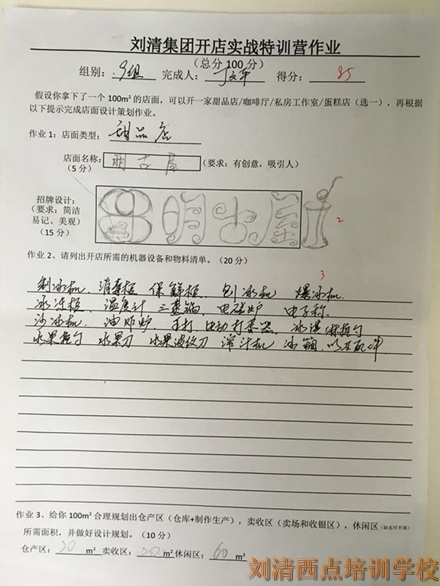 刘清集团开店实战特训营作业
(总分 100 分)
组别: 9组 完成人: 得分: 85
假设你拿下了一个 100m² 的店面，可以开一家甜品店/咖啡厅/私房工作室/蛋糕店（选一），再根
据以下提示完成店面设计策划作业。
作业 1: 店面类型: 甜品店
店面名称:
(5 分)
(要求: 有创意，吸引人)
招牌设计:
(要求: 简洁
易记、美观)
(15 分)
2
作业 2、请列出开店所需的机器设备和物料清单。(20 分)
3
制冰机, 消毒柜 保鲜柜, 刨冰机 爆冰机,
冰冻柜, 温度计 电磁炉 电子称
沙冰机, 油炸炉, 手打,电动打蛋器,
水果挖勺 水果刀 水果波纹刀 榨汁机
作业 3、给你 100m² 合理规划出仓产区（仓库+制作生产），卖收区（卖场和收银区），休闲区
所需面积，并做好设计规划。(10 分)
仓产区: 20 m² 卖收区: 20 m² 休闲区: 60 m²
刘清西点培训学校